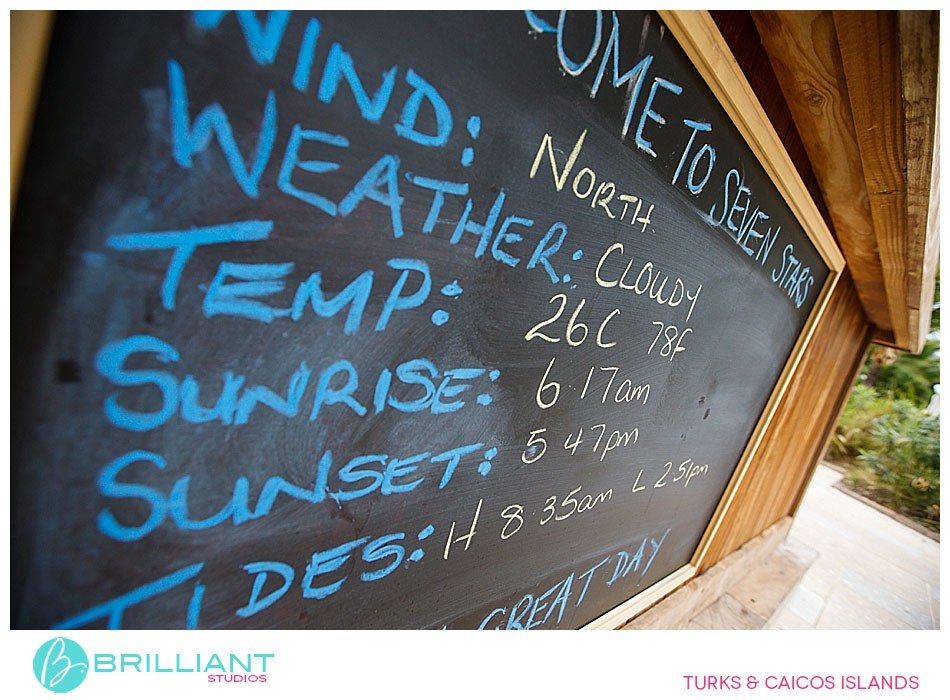 COME TO SEVEN STARS
WIND: NORTH.
WEATHER: CLOUDY
TEMP: 26C 78F
SUNRISE: 6.17am
SUNSET: 5 47pm
TIDES: H 8.35am L 2.51pm
GREAT DAY
BRILLIANT
STUDIOS
TURKS & CAICOS ISLANDS